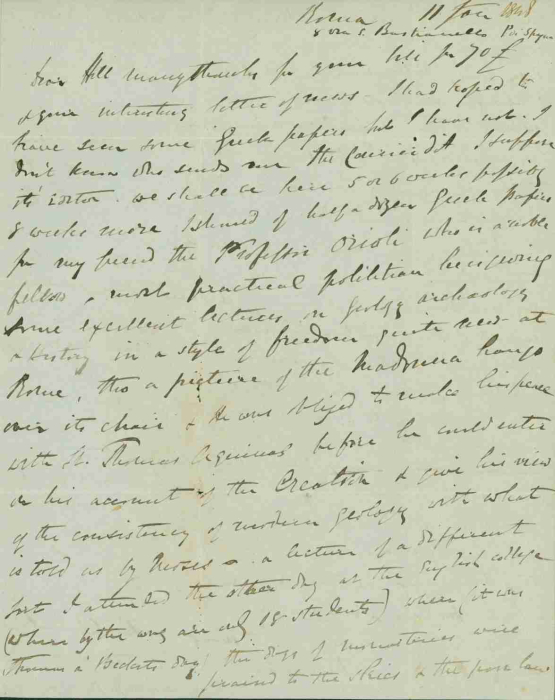 Roma 11 Jan 1848
8 via S. Bastianello Pza Spagna
Dear Hill many thanks for your bill for 70 £
& your interesting letter of news. I had hoped to
have seen some Greek papers but I have not. I
don't know who sends me the Courier d'A I suppose
its editor. we shall be here 5 or 6 weeks possibly
8 weeks more Instead of half a dozen Greek papers
for my friend the Professor Orioli who is a noble
fellow, most practical politician he is giving
some excellent lectures on geology archaeology
& history in a style of freedom quite new at
Rome, tho a picture of the Madonna hangs
over its chair & he was obliged to make his peace
with St. Thomas Aquinas before he could enter
on his account of the Creation & give his view
of the consistency of modern geology with what
is told us by Moses - a lecture of a different
sort I attended the other day at the English college
(where by the way are only 18 students) where (it was
Thomas a' Beckets day) the days of monasteries were
praised to the skies & the poor law